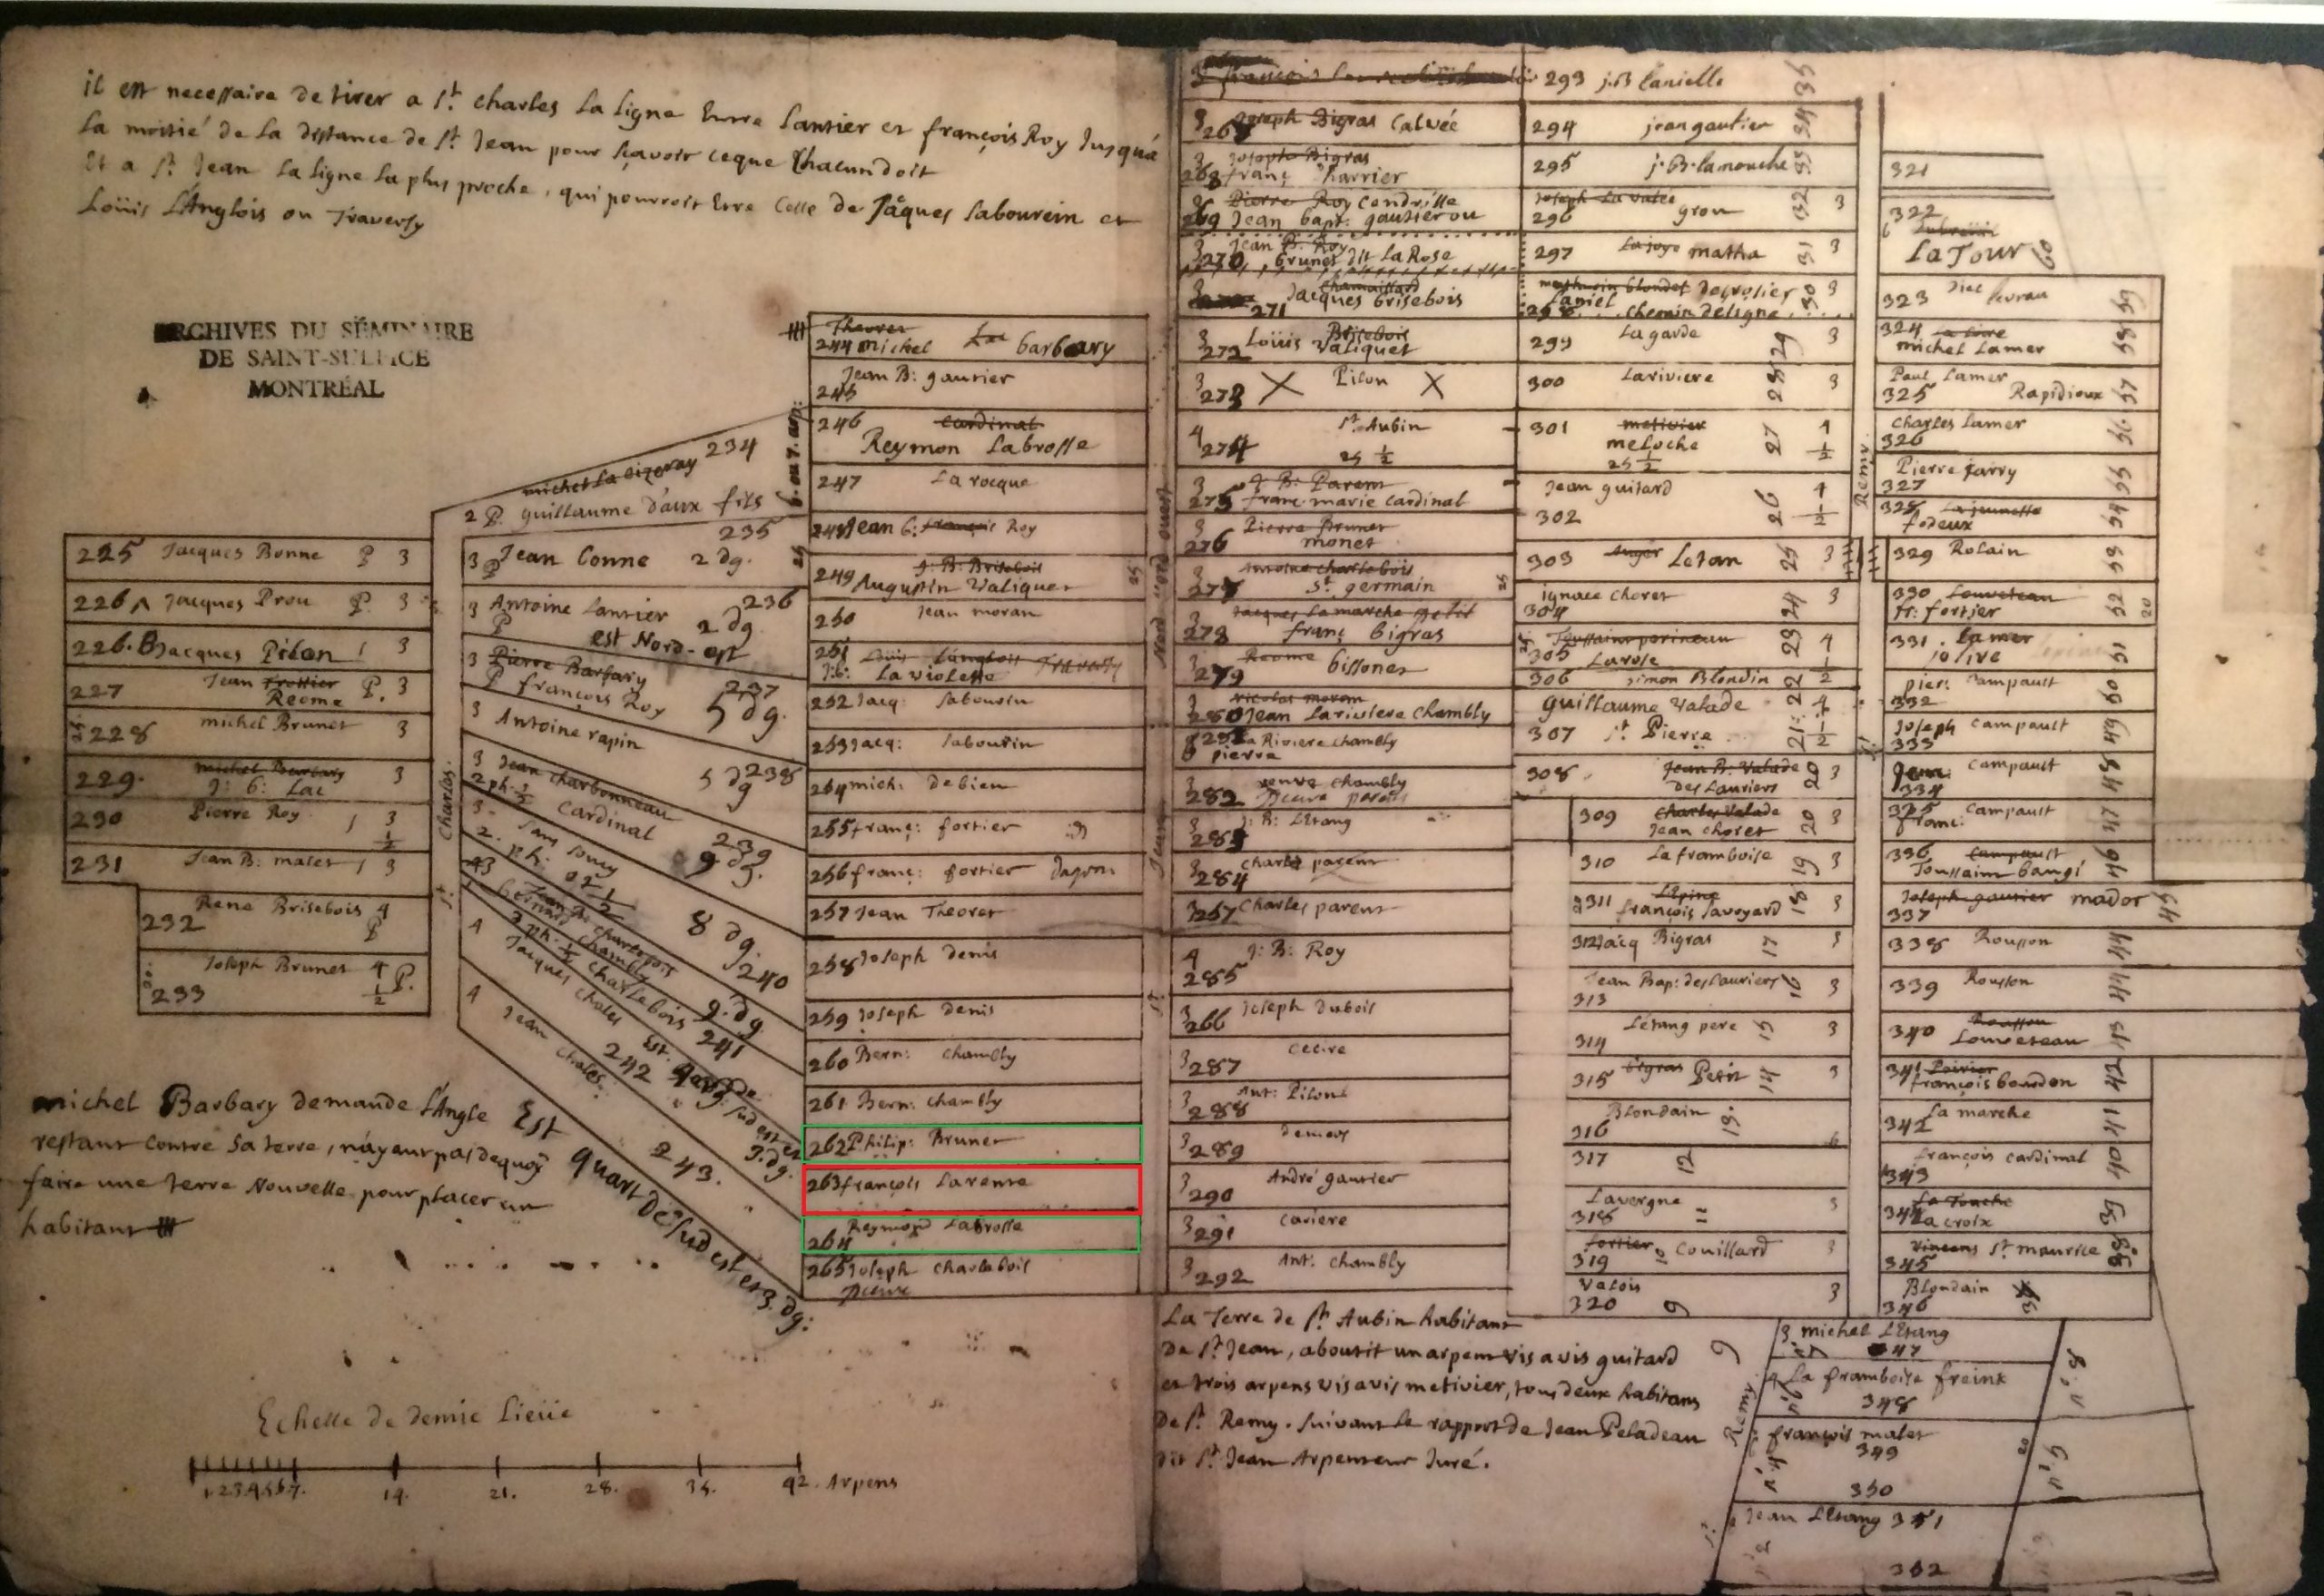 il est necessaire de tirer a St. charles La Ligne Entre Lantier et françois Roy Jusqu'a
La moitié de La distance de St. Jean pour sçavoir ce que Chacun doit
Et a St. Jean La Ligne La plus proche, qui pourroit Etre Celle de Jâques Sabourin et
Loüis L'Anglois ou Traversy
ARCHIVES DU SÉMINAIRE
DE SAINT-SULPICE
MONTRÉAL
225 Jacques Bonne P 3
226 A Jacques Prou P. 3
226. B Jacques Pilon 1 3
227 Jean Trottier P. 3
Reome
228 michel Brunet 3
229. michel Barbary 3
J: b: Lac
230 Pierre Roy 1 3 1/2
231 Jean B: malet 1 3
232 Rene Brisebois 4 P
233 Joseph Brunet 4 1/2 P.
St. Charles.
michel La 234
2 P. guillaume daux fils
235
3 P Jean Conne 2 dg.
3 Antoine Lantier 236
P 2 dg
est Nord-est
3 Pierre Barbary 237
P françois Roy 5 dg.
3 Antoine rapin
5 dg 238
3 Jean charbonneau
2 ph. 1/2 Cardinal 239
9 dg.
3 Sans Soucy
2. ph. 8 dg.
240
bernard Chambly
ph. 1/2 charlebois 9. dg
241
4 Jacques choles Est.
242 quart de sud est et
3. dg.
4 Jean choles. 243.
Est quart de sud est et 3. dg:
6. ou 7. arp:
Theoret
244 michel barbary
Jean B: gautier
245
246 Cardinal
Reymon Labrosse
247 La rocque
248 Jean b: françois Roy
249 J: B: Brisebois
Augustin Valiquet
25
250 Jean moran
251 Loüis Langlois Traversy
J: b: La violette
252 Jacq: Sabourin
253 Jacq: Sabourin
254 mich: debien
255 franç: fortier
256 franç: fortier
257 Jean Theoret
258 Joseph denis
259 Joseph denis
260 Bern: Chambly
261 Bern: Chambly
262 Philip: Brunet
263 françois Larente
Reymond Labrosse
264
265 Joseph charlebois
Pierre
michel Barbary demande L'Angle
restant Contre Sa terre, n'ayant pas de quoy
faire une terre Nouvelle pour placer un
habitant
Echelle de demie Lieüe
1.2.3.4.5.6.7. 14. 21. 28. 35. 42. Arpens
Nord ouest
Joseph Bigras Calvée
267
Joseph Bigras
268 franç harrier
Pierre Roy Cendrille
269 Jean bapt: gautier ou
3 Jean B. Roy
270 brunet dit La Rose
Chamaillard
Jacques brisebois
271
3 Loüis Brisebois
272 Valiquet
3 Pilon
273 X X
4 St. Aubin
274 25 1/2
3 J: B: Parent
275 franc. marie Cardinal
3 Pierre Brunet
276 monet
3 Antoine charlebois
277 St. germain 25
Jacques Lamarche petit
278 franç bigras
3 Reome bissonet
279
Nicolas moran
280 Jean Lariviere Chambly
281 La Riviere chambly
pierre
veuve Chambly
282 Pierre parent
3 J: B: LEtang
283
3 Charle parent
284
3 257 Charles parent
4 J: B: Roy
285
3 Joseph dubois
266
3 Cecire
287
3 Ant: Pilon
288
3 demers
289
3 André gautier
290
3 Cariere
291
3 Ant: Chambly
292
293 J.B Lanielle 35
294 jean gautier 34
295 j. B. lamouche 33
Joseph La valée 32 3
296 grou
297 La joye matha 31 3
mathurin blondet desrosier 30 3
Laniel
298 chemin de Ligne
299 La garde 29 3
300 Lariviere 28 3
301 metivier 27 4 1/2
meloche
25 1/2
Jean guitard 26 4 1/2
302
303 Auger Letan 25 3
ignace choret 24 3
304
Toussaint perineau 23 4
305 Larose
306 Simon Blondin 22 1/2
guillaume Valade 4
307 St. Pierre 21 1/2
308 Jean B. Valade 20 3
des Lauriers
309 Charles Valade 20 3
Jean choret
310 La framboise 19 3
311 LEpine 18 3
françois Savoyard
312 Jacq Bigras 17 3
Jean Bap: des Lauriers 16 3
313
Létang pere 15 3
314
315 bigras Petit 14 3
Blondain 13.
316
317 12
Lavergne 11 3
318
fortier Couillard 10 3
319
Valois 3
320 9
St. Remy
321
322
6 Dubreüil
LaTour 60
323 59
324 58
michel Lamer
Paul Lamer 57
325 Rapidioux
Charles Lamer 56
326
Pierre Jarry 55
327
328 La jeunesse 54
fodeux
329 Rolain 53
330 Louveteau 52 20
fr: fortier
331. Lamer 51
jolive
pier: Campault 50
332
Joseph Campault 49
333
Jean Campault 48
334
335 Campault 47
franc:
336 Campault 46
Toussaint bangi
Joseph gautier mador 45
337
338 Rousson 44
339 Rousson 44
340 Rousson 43
Louveteau
341 Poirier 42
françois bourdon
La marche 41
342
françois cardinal 40
343
La Touche 39
344 La croix
Vincent St. maurice 38
345
Blondain
346
La Terre de St. Aubin habitant
De St. Jean, aboutit un arpent vis a vis guitard
et trois arpens vis a vis metivier, tous deux habitans
De St. Remy. Suivant Le rapport de Jean Peladeau
dit St. Jean Arpenteur Juré.
3 michel LEtang
347
La framboise freint
348
françois malet
349
350
Jean LEtang 351
352